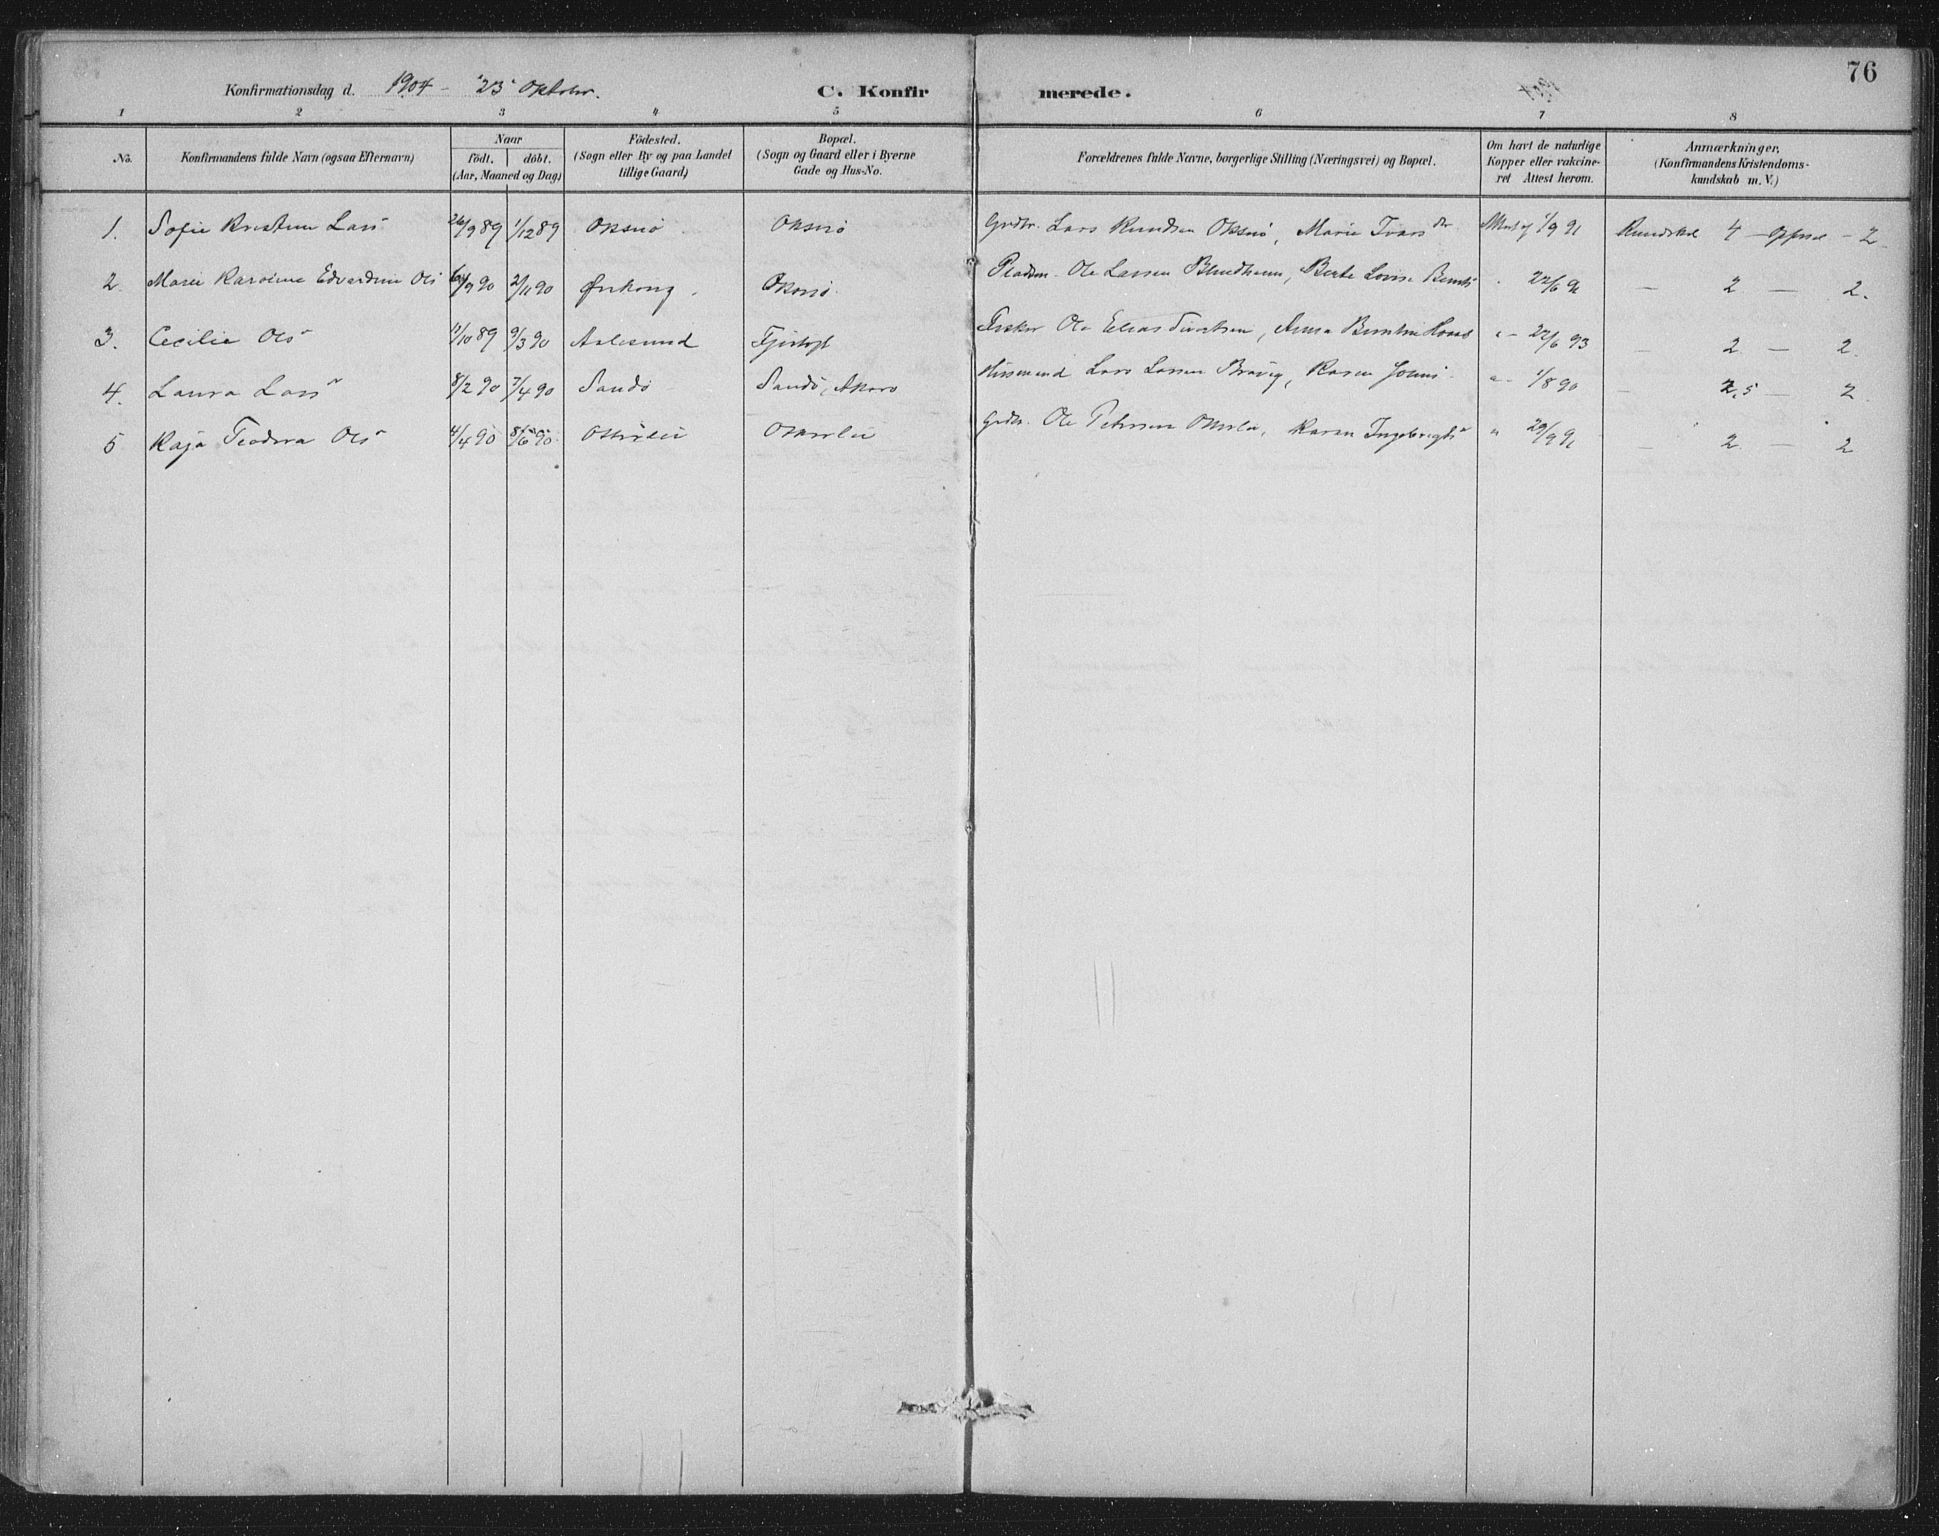 76
Konfirmationsdag d. 1904 - 23 Oktober.
C. Konfirmerede.
1904
1 2 3 4 5 6 7 8
No. Konfirmandens fulde Navn (ogsaa Efternavn) Naar födt. döbt. (Aar, Maaned og Dag) Födested. (Sogn eller By og paa Landet tillige Gaard) Bopæl. (Sogn og Gaard eller i Byerne Gade og Hus-No. Forældrenes fulde Navne, borgerlige Stilling (Næringsvei) og Bopæl. Om havt de naturlige Kopper eller vakcineret Attest herom. Anmærkninger, (Konfirmandens Kristendomskundskab m. V.)
1. Sofie Kristine Lars 26/9 89 1/12 89 Oksnø Oksnø Grdbr. Lars Knudsen Oksnø, Marie Ivars dr Attest af 1/9 91 Kundskab 4 - Opførsel - 2.
2. Marie Karoline Edvardine Ols 6/9 90 2/11 90 Ørskoug. Oksnø. Pladsm. Ole Larsen Blindheim, Berte Lovise Bernts " 22/6 91 - 2 - 2.
3. Cecilie Ols 11/10 89 9/3 90 Aalesund Fjørtoft Fisker Ole Elias Sivertsen, Anna " - 22/6 93 - 2. - 2.
4. Laura Lars 8/2 90 7/4 90 Sandø Sandø, Husmand Lars Larsen Brøvig, Karen Johns " - 1/8 90 - 2,5 - 2.
5 Kaja Teodora Ols 4/4 90 8/6 90. Grdbr. Ole Petersen Karen Ingebrigts " 29/9 91 - 2. - 2